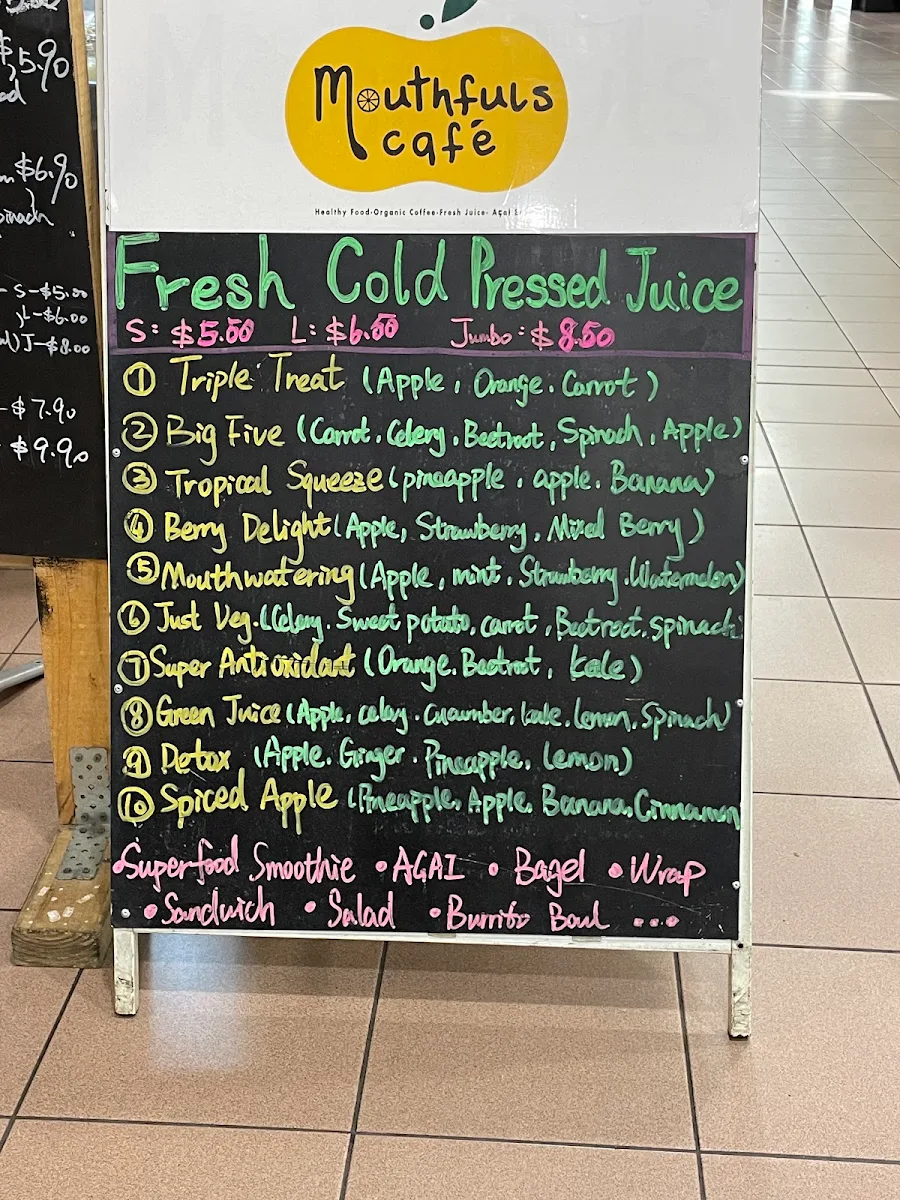 $5.90
$6.90
S-$5.50
L-$6.00
J-$8.00
$7.90
$9.90
Mouthfuls
café
Healthy Food·Organic Coffee·Fresh Juice· Açaí
Fresh Cold Pressed Juice
S: $5.50 L: $6.50 Jumbo: $8.50
① Triple Treat (Apple, Orange. Carrot)
② Big Five (Carrot. Celery. Beetroot, Spinach, Apple)
③ Tropical Squeeze (pineapple. apple. Banana)
④ Berry Delight (Apple, Strawberry, Mixed Berry)
⑤ Mouthwatering (Apple, mint. Strawberry. Watermelon)
⑥ Just Veg. (Celery. Sweet potato, carrot, Beetroot. spinach
⑦ Super Antioxidant (Orange. Beetroot, kale)
⑧ Green Juice (Apple. celery. cucumber, kale. lemon, spinach)
⑨ Detox (Apple. Ginger. Pineapple, Lemon)
⑩ Spiced Apple (Pineapple, Apple. Banana. Cinnamon
•Superfood Smoothie •ACAI • Bagel • Wrap
•Sandwich • Salad •Burrito Boul ...